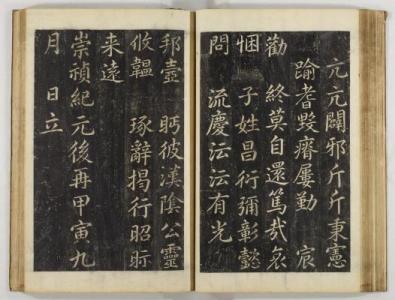 亢亢闢邪斤斤秉憲
踰耆毀瘠屢勤 宸
勸 終莫自還篤哉哀
悃 子姓昌衍彌彰懿
問 流慶沄沄有光
邦壼 眄彼漢陰公靈
攸韞 琢辭揭行昭眎
来遠
崇禎紀元後再甲寅九
月 日立